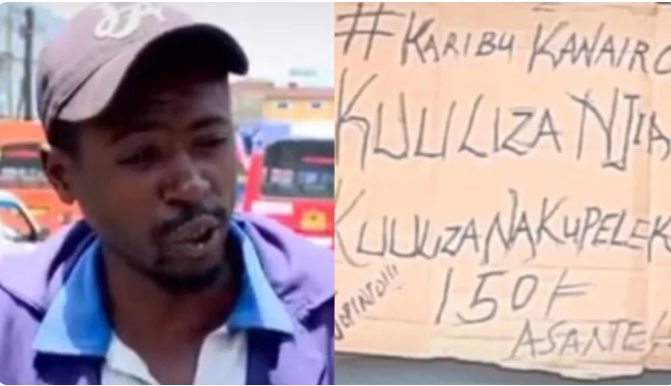 #KARIBU KANAIRO
KUULIZA NJIA
KUULIZA NAKUPELEK
150F
ASANTE!!